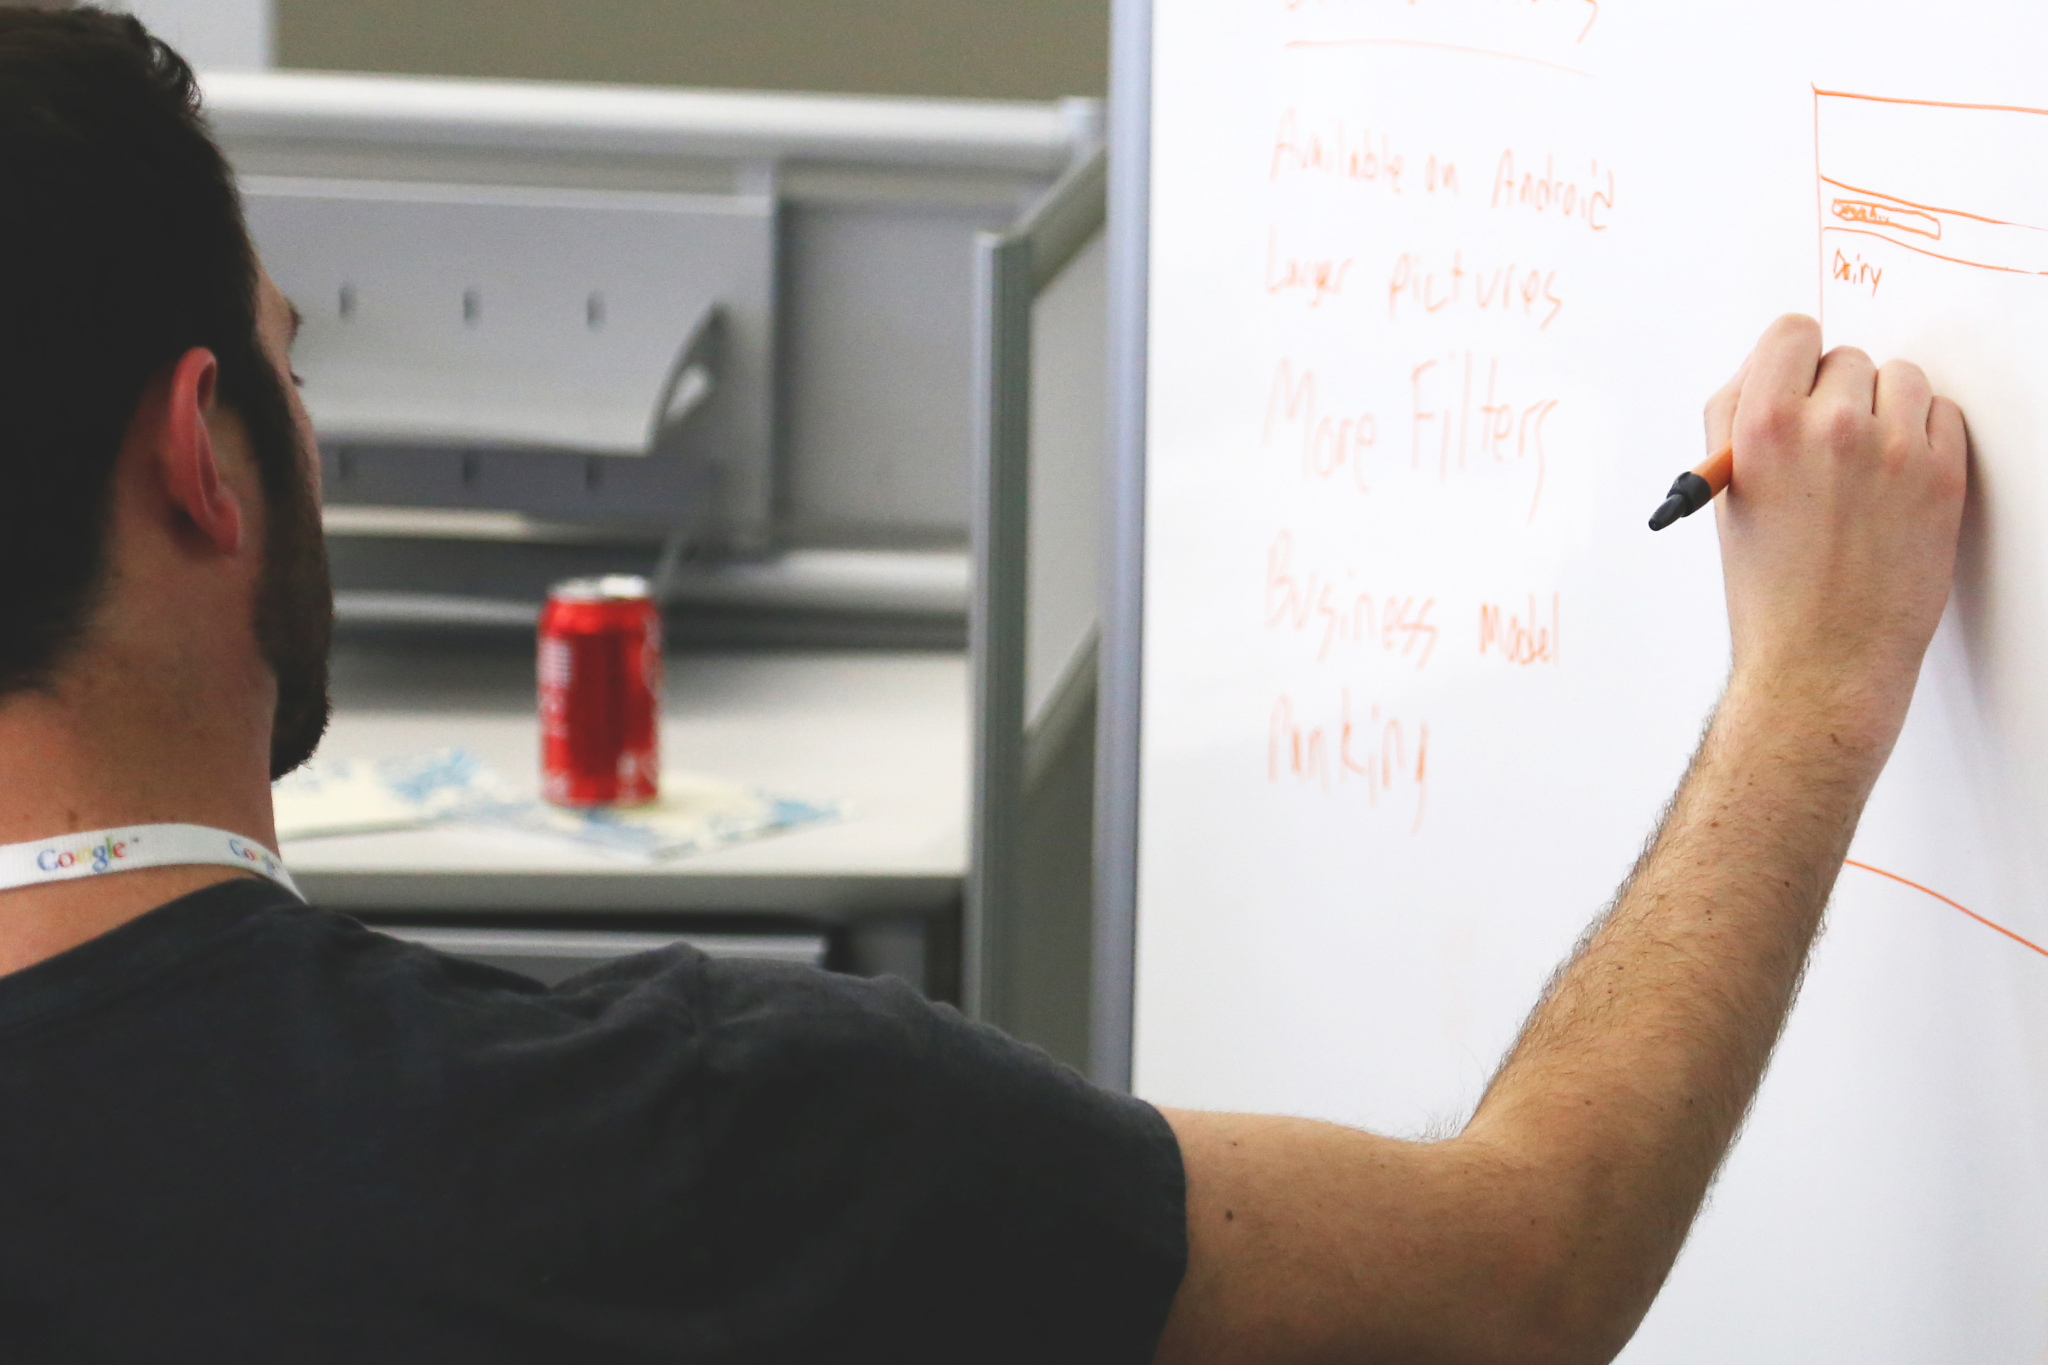 Available on Android
Larger pictures
More Filters
Business Model
Ranking
Dairy
Google™